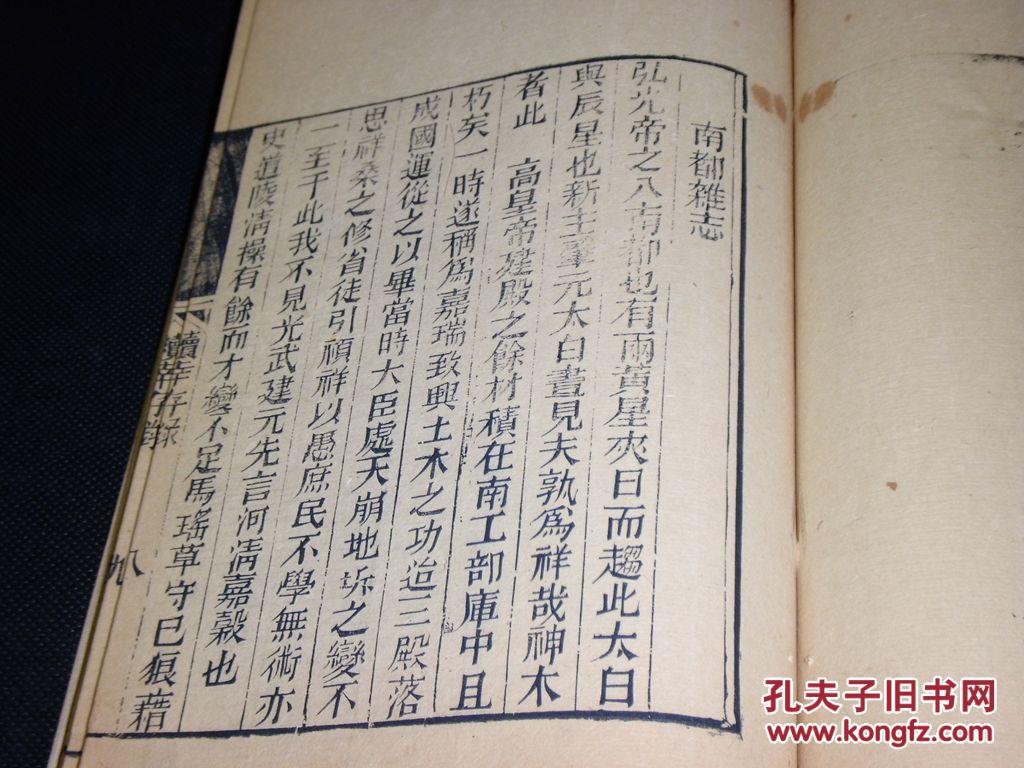 南都雜志
弘光帝之入南都也有兩黃星夾日而趨此太白
與辰星也新主肇元太白晝見夫孰為祥哉神木
者此　高皇帝建殿之餘材積在南工部庫中且
朽矣一時遂稱為嘉瑞致興土木之功迨三殿落
成國運從之以畢當時大臣處天崩地坼之變不
思祥桑之修省徒引禎祥以愚庶民不學無術亦
一至于此我不見光武建元先言河清嘉穀也
史道陵清操有餘而才變不足馬瑤草守己狼藉
續幸存錄
八
九
孔夫子旧书网
www.kongfz.com